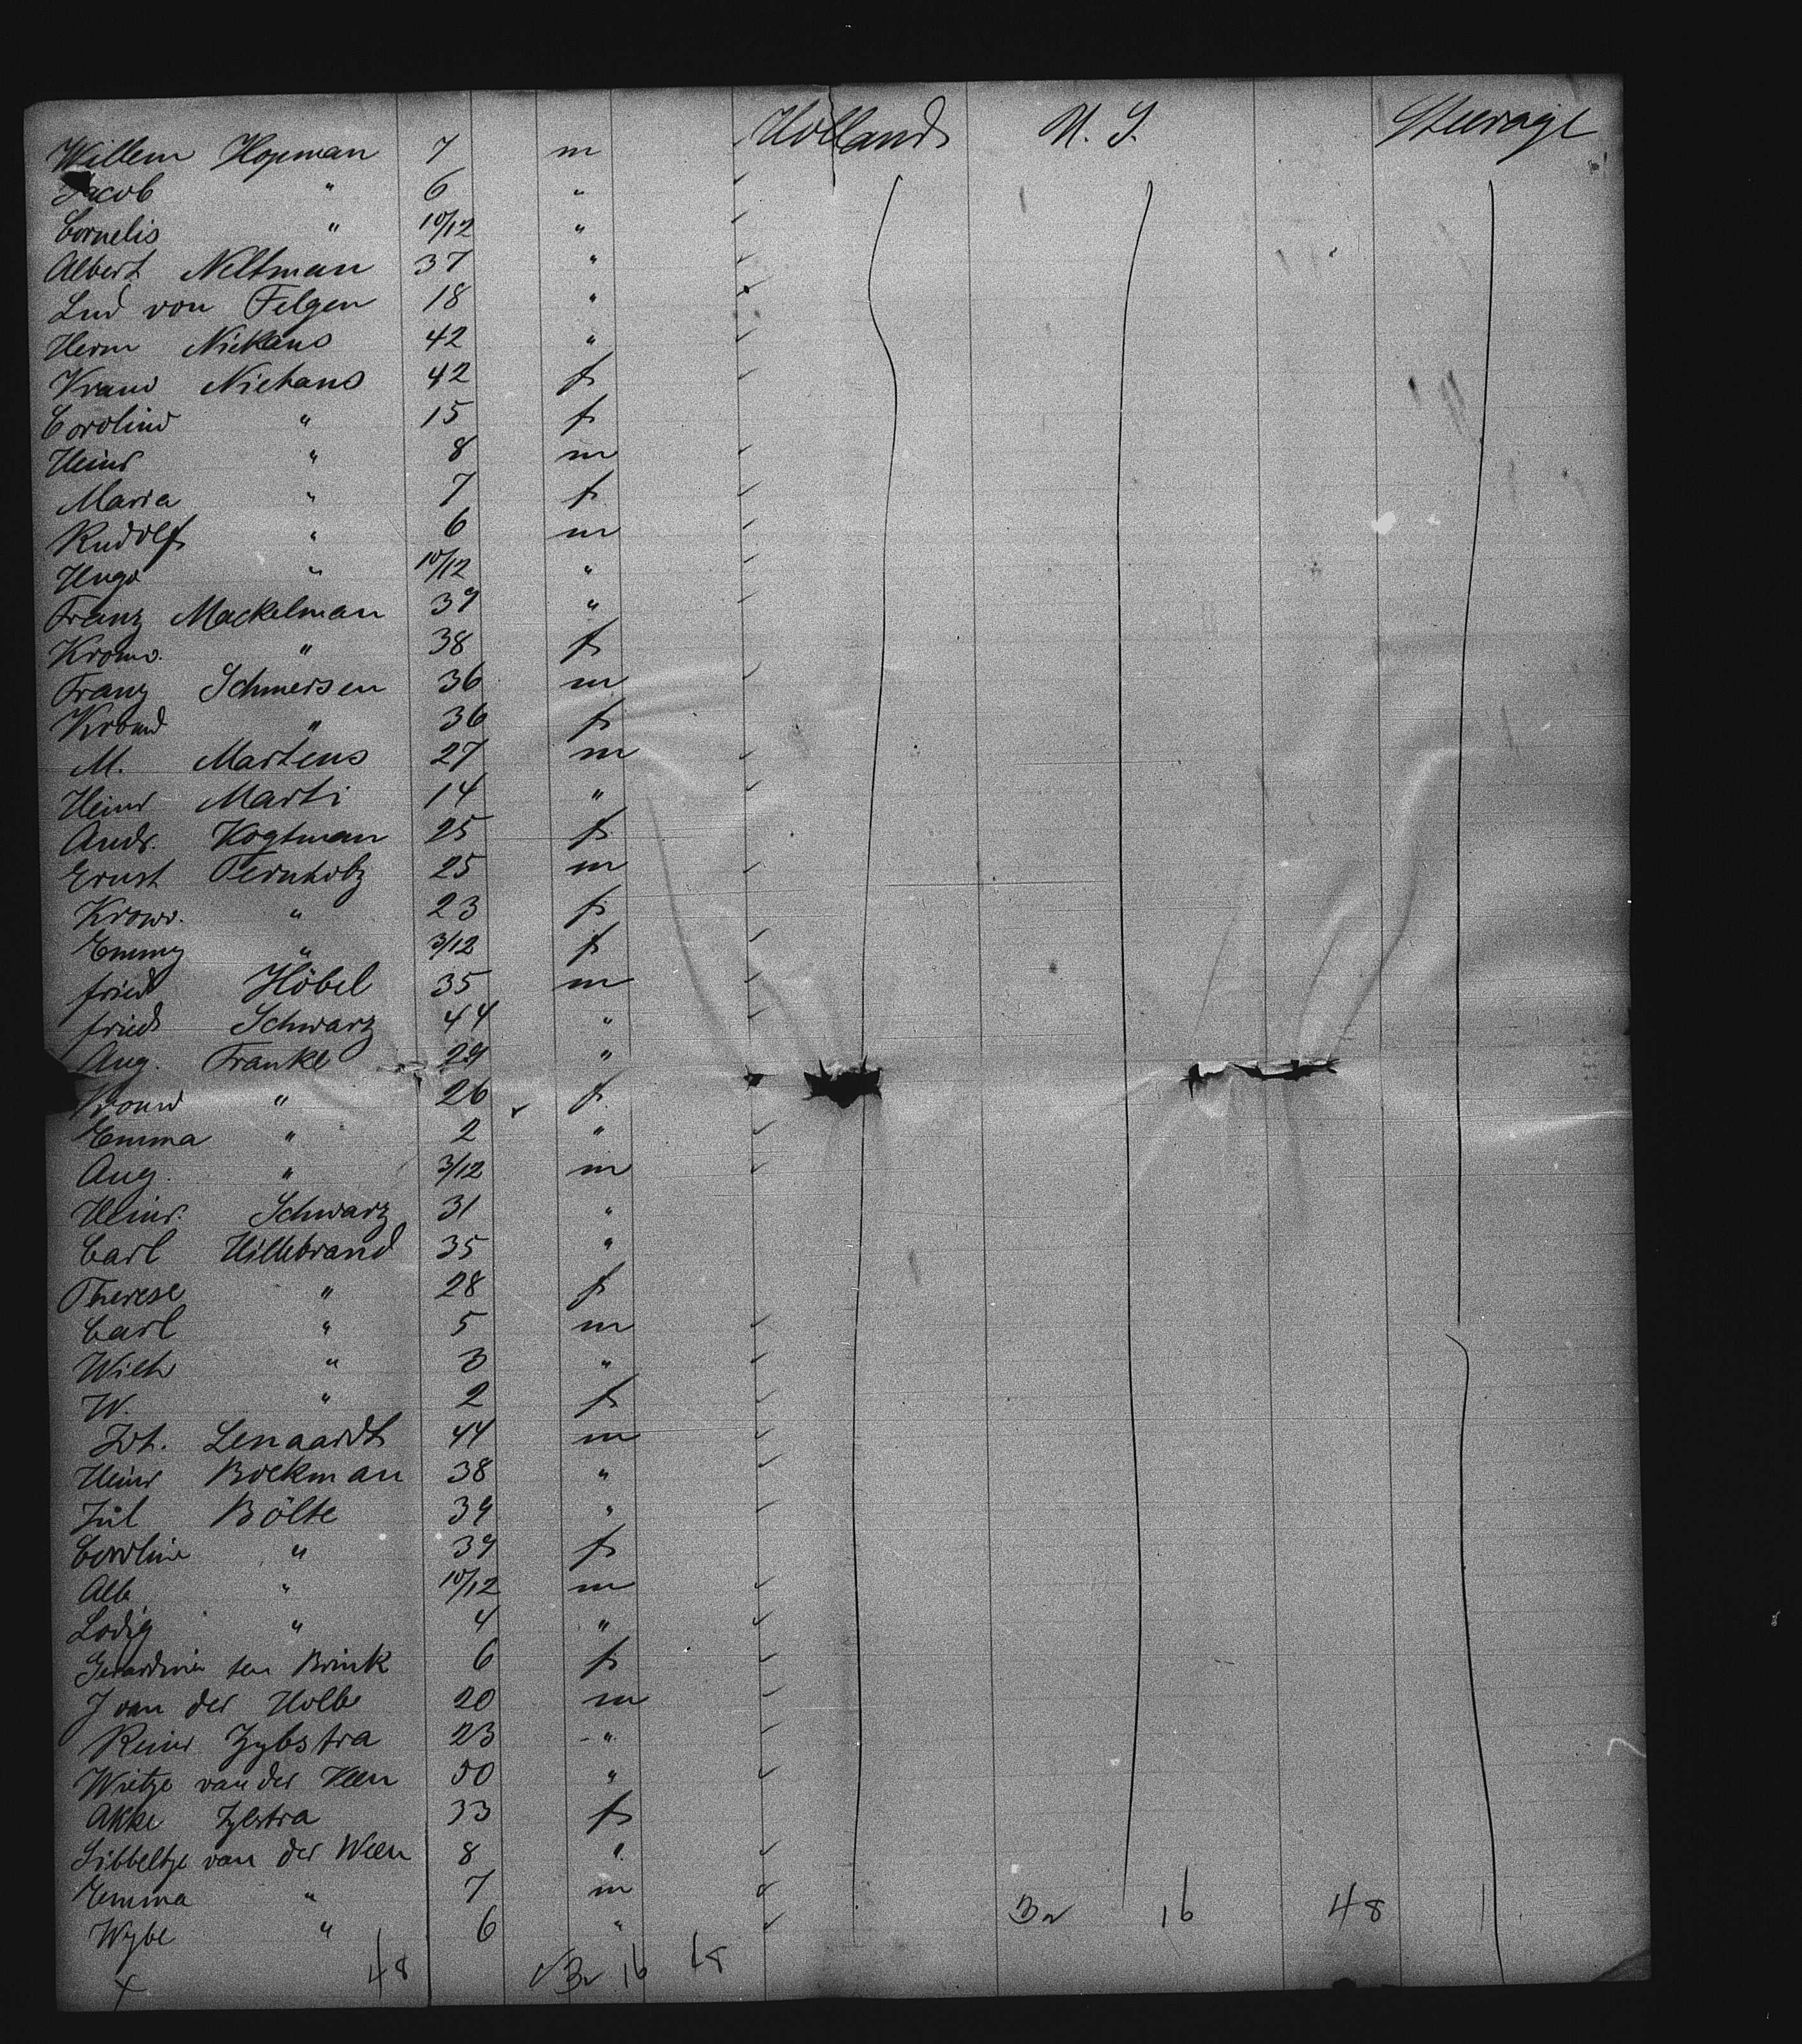 Willem Hopman 7 m Holland U. S. Steerage
Jacob " 6 "
Cornelis " 10/12 "
Albert Neltman 37 "
Lud von Felgen 18 "
Herm Niehaus 42 "
Vrauw Niehaus 42 f
Carolina " 15 f
Heinr " 8 m
Maria " 7 f
Rudolf " 6 m
Hugo " 10/12 "
Franz Mackelman 39 "
Vrouw. " 38 f
Franz Schmersen 36 m
Vrouw " 36 f
M. Martens 27 m
Heinr Marti 14 "
Andr. Vogtman 25 f
Ernst Fernholz 25 m
Vrouw. " 23 f
Emmy " 3/12 f
fried Höbel 35 m
fried Schwarz 44 "
Aug. Franke 29 "
Vrouw " 26 f
Emma " 2 "
Aug. " 3/12 m
Heinr. Schwarz 31 "
Carl Hillebrand 35 "
Therese " 28 f
Carl " 5 m
Wilh " 3 "
W. " 2 f
Joh. Lenaardt 44 m
Heinr Boekman 38 "
Jul Bölte 39 "
Caroline " 39 f
Alb " 10/12 m
Lodig " 4 "
Gerardina ten Brink 6 f
J van der Holb 20 m
Reinr Zybstra 23 "
Wietze van der Veen 50 "
Akke Zylstra 33 f
Sibbeltje van der Veen 8 "
Emma " 7 m
Wybe " 6 "
16 48 1
48 16 48
x